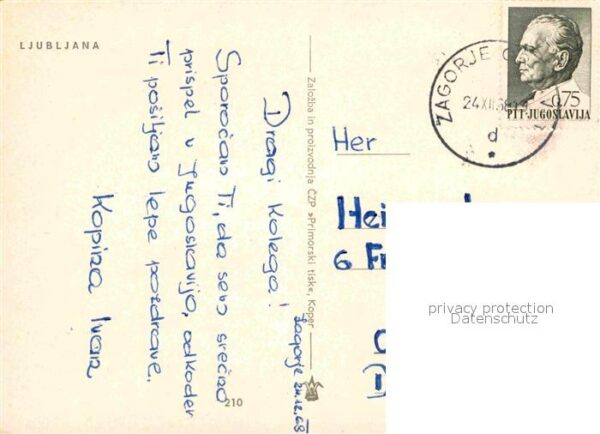 LJUBLJANA
Zagorje 24.12.68
Dragi Kolega!
Sporočam Ti, da sem srečno
prispel v Jugoslavijo, odkoder
Ti pošiljam lepe pozdrave.
Kopina Ivan
210
Založba in proizvodnja ČZP »Primorski tisk«, Koper
ZAGORJE
24.XII.68
d
0.75
PTT-JUGOSLAVIJA
Her
Hei
6 Fr
privacy protection
Datenschutz